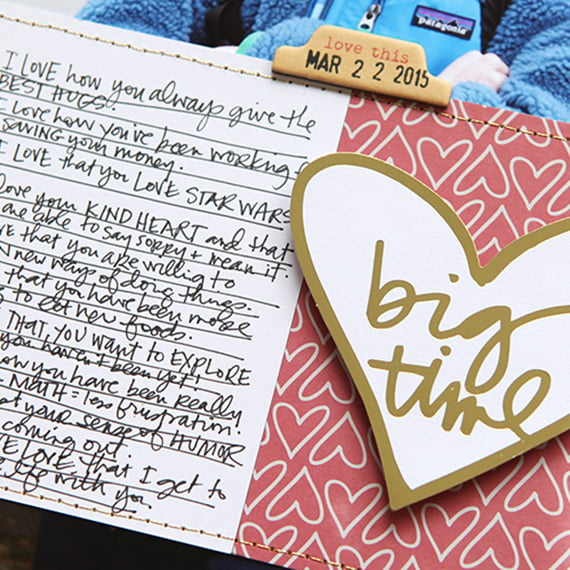 patagonia
love this
MAR 22 2015
I LOVE how you always give the
BEST HUGS!
I love how you've been working +
saving your money.
I LOVE that you LOVE STAR WARS
love your KIND HEART and that
are able to say sorry + mean it.
that you are willing to
new ways of doing things.
that you have been more
to eat new foods.
THAT YOU WANT TO EXPLORE
you haven't been yet!
how you have been really
MATH = less frustration.
your sense of HUMOR
coming out.
LOVE that I get to
life with you.
big
time